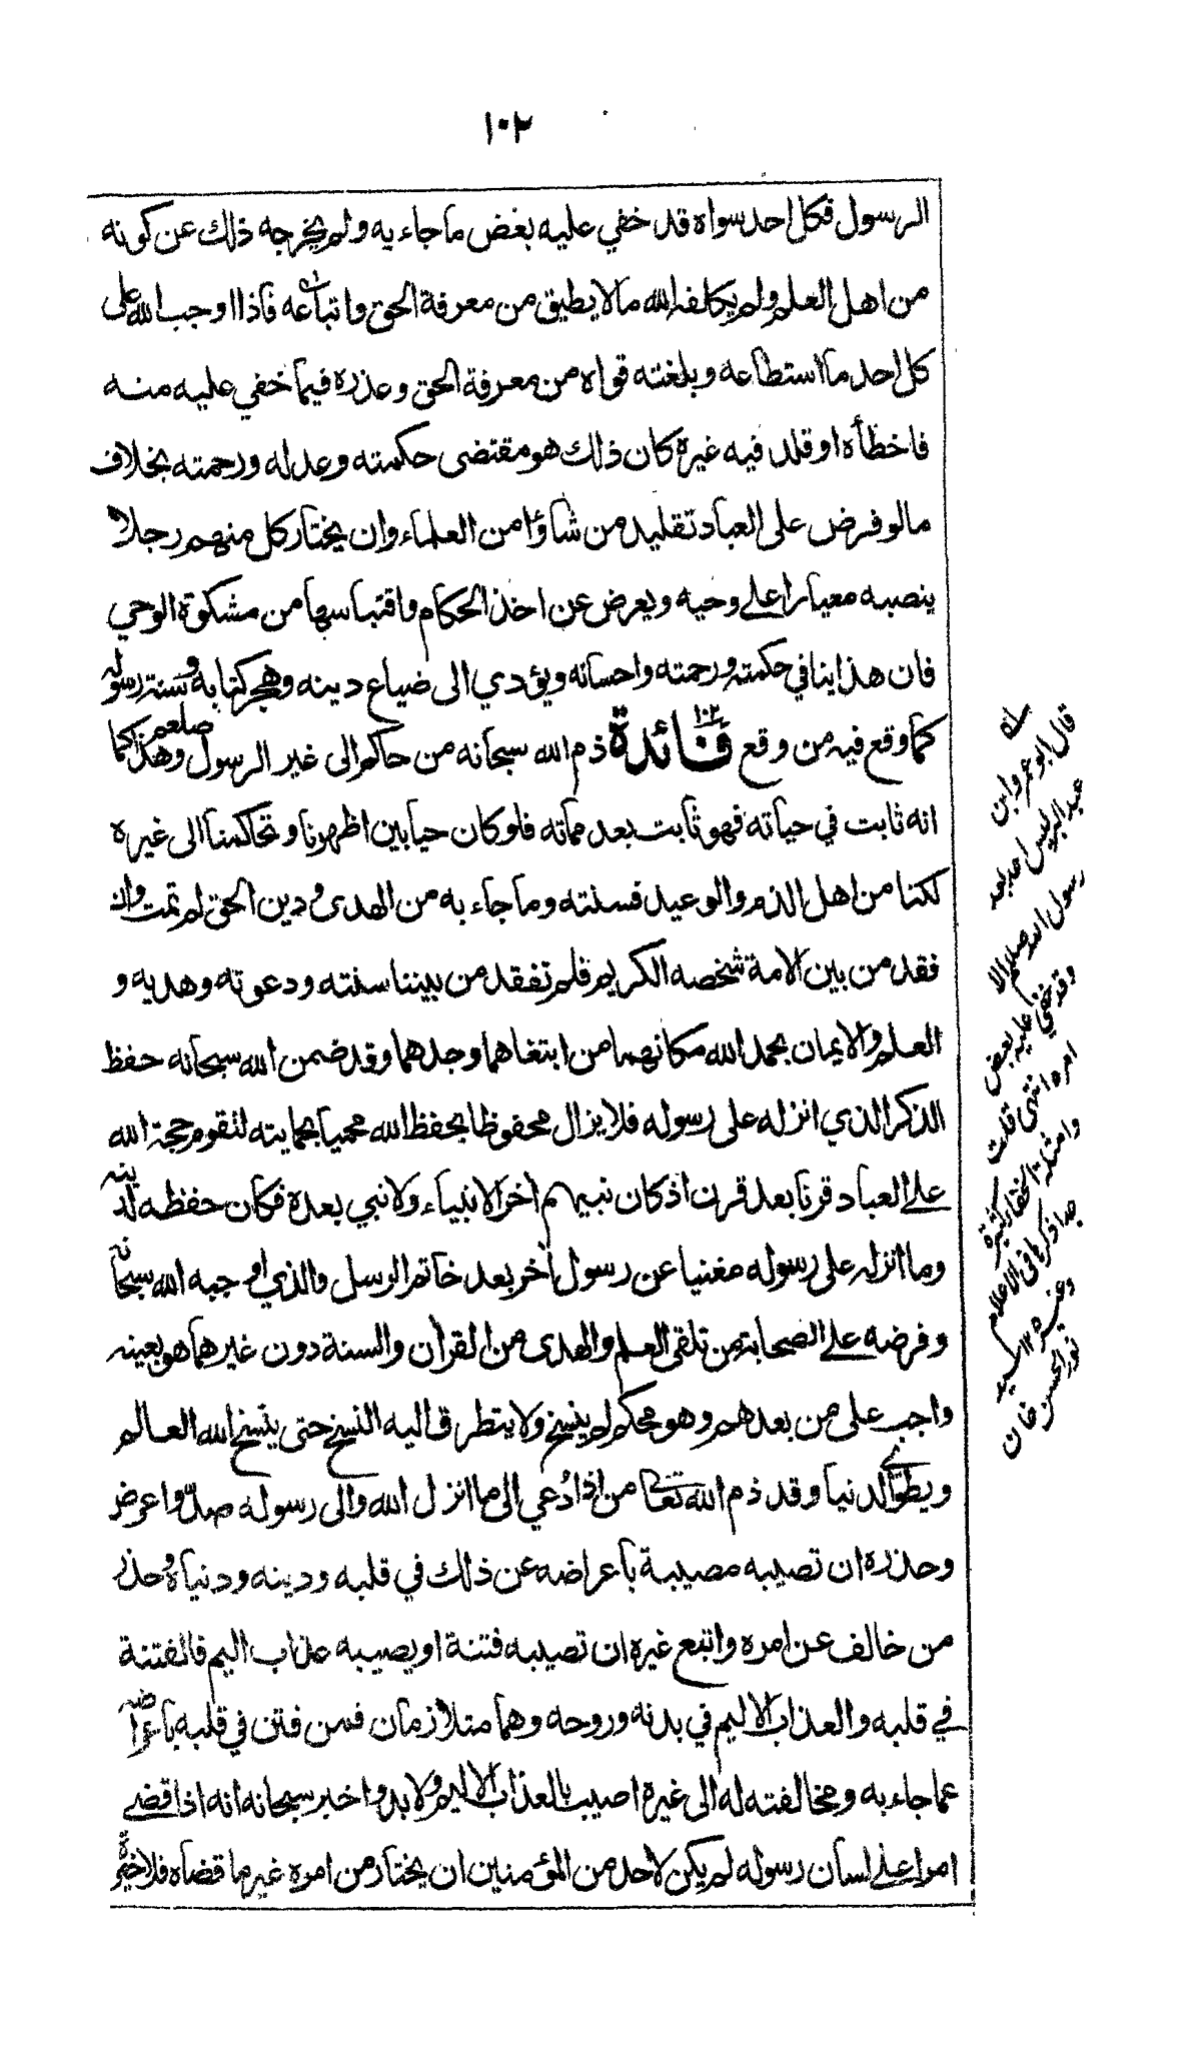 ١٠٢
الرسول فكل احد سواه قد خفي عليه بعض ما جاء به ولم يخرجه ذلك عن كونه
من اهل العلم ولم يكلفه الله مالا يطيق من معرفة الحق واتباعه فاذا اوجب الله على
كل احد ما استطاعه وبلغته قواه من معرفة الحق وعذره فيما خفي عليه منه
فاخطأه او قلد فيه غيره كان ذلك هو مقتضى حكمته وعدله ورحمته بخلاف
مالو فرض على العباد تقليد من شاؤا من العلماء وان يختار كل منهم رجلا
ينصبه معيارا على وحيه ويعرض عن اخذ الحكام واقتباسها من مشكوة الوحي
فان هذا ينافي حكمته ورحمته واحسانه ويؤدي الى ضياع دينه وهجر كتابه وسنة رسوله
كما وقع فيه من وقع فائدة ١٠٢ ذم الله سبحانه من حاكم الى غير الرسول صلعم وهذا كما
انه ثابت في حياته فهو ثابت بعد مماته فلو كان حيا بين اظهرنا وتحاكمنا الى غيره
لكنا من اهل الذم والوعيد فسنته وما جاء به من الهدى ودين الحق لم تمت وان
فقد من بين الامة شخصه الكريم فلم تفقد من بيننا سنته ودعوته وهديه و
العلم والايمان بحمد الله مكانهما من ابتغاهما وجدهما وقد ضمن الله سبحانه حفظ
الذكر الذي انزله على رسوله فلا يزال محفوظا بحفظ الله محميا بحمايته لتقوم حجة الله
على العباد قرنا بعد قرن اذ كان نبيهم اخر الانبياء ولا نبي بعده فكان حفظه لدينه
وما انزله على رسوله مغنيا عن رسول آخر بعد خاتم الرسل والذي اوجبه الله سبحانه
وفرضه على الصحابة من تلقي العلم والهدى من القرآن والسنة دون غيرهما هو بعينه
واجب على من بعدهم وهو محكم لم ينسخ ولا يتطرق اليه النسخ حتى ينسخ الله العالم
ويطوي الدنيا وقد ذم الله تعالى من اذا دُعي الى ما انزل الله والى رسوله صدّ واعرض
وحذره ان تصيبه مصيبة باعراضه عن ذلك في قلبه ودينه ودنياه وحذر
من خالف عن امره واتبع غيره ان تصيبه فتنة او يصيبه عذاب اليم فالفتنة
في قلبه والعذاب الاليم في بدنه وروحه وهما متلازمان فمن فتن في قلبه باعراضه
عما جاء به ومخالفته له الى غيره اصيب بالعذاب الاليم ولا بد واخبر سبحانه انه اذا قضى
امرا على لسان رسوله لم يكن لاحد من المؤمنين ان يختار من امره غير ما قضاه فلا خيرة
قال ابو عمرو ابن
عبد البر ليس احد بعد
رسول الله صلعم الا
وقد خفي عليه بعض
امره انتهى قلت
وامثلة الخفا كثيرة
جدا ذكرها في الاعلام
وغيره ١٢ سيد
نور الحسن خان